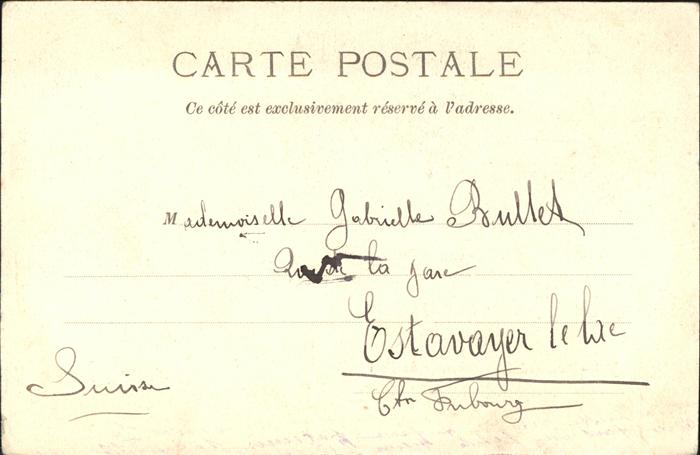 CARTE POSTALE
Ce côté est exclusivement réservé à l'adresse.
Mademoiselle Gabrielle Bullet
de la gare
Estavayer le lac
Suisse
Ctn Fribourg